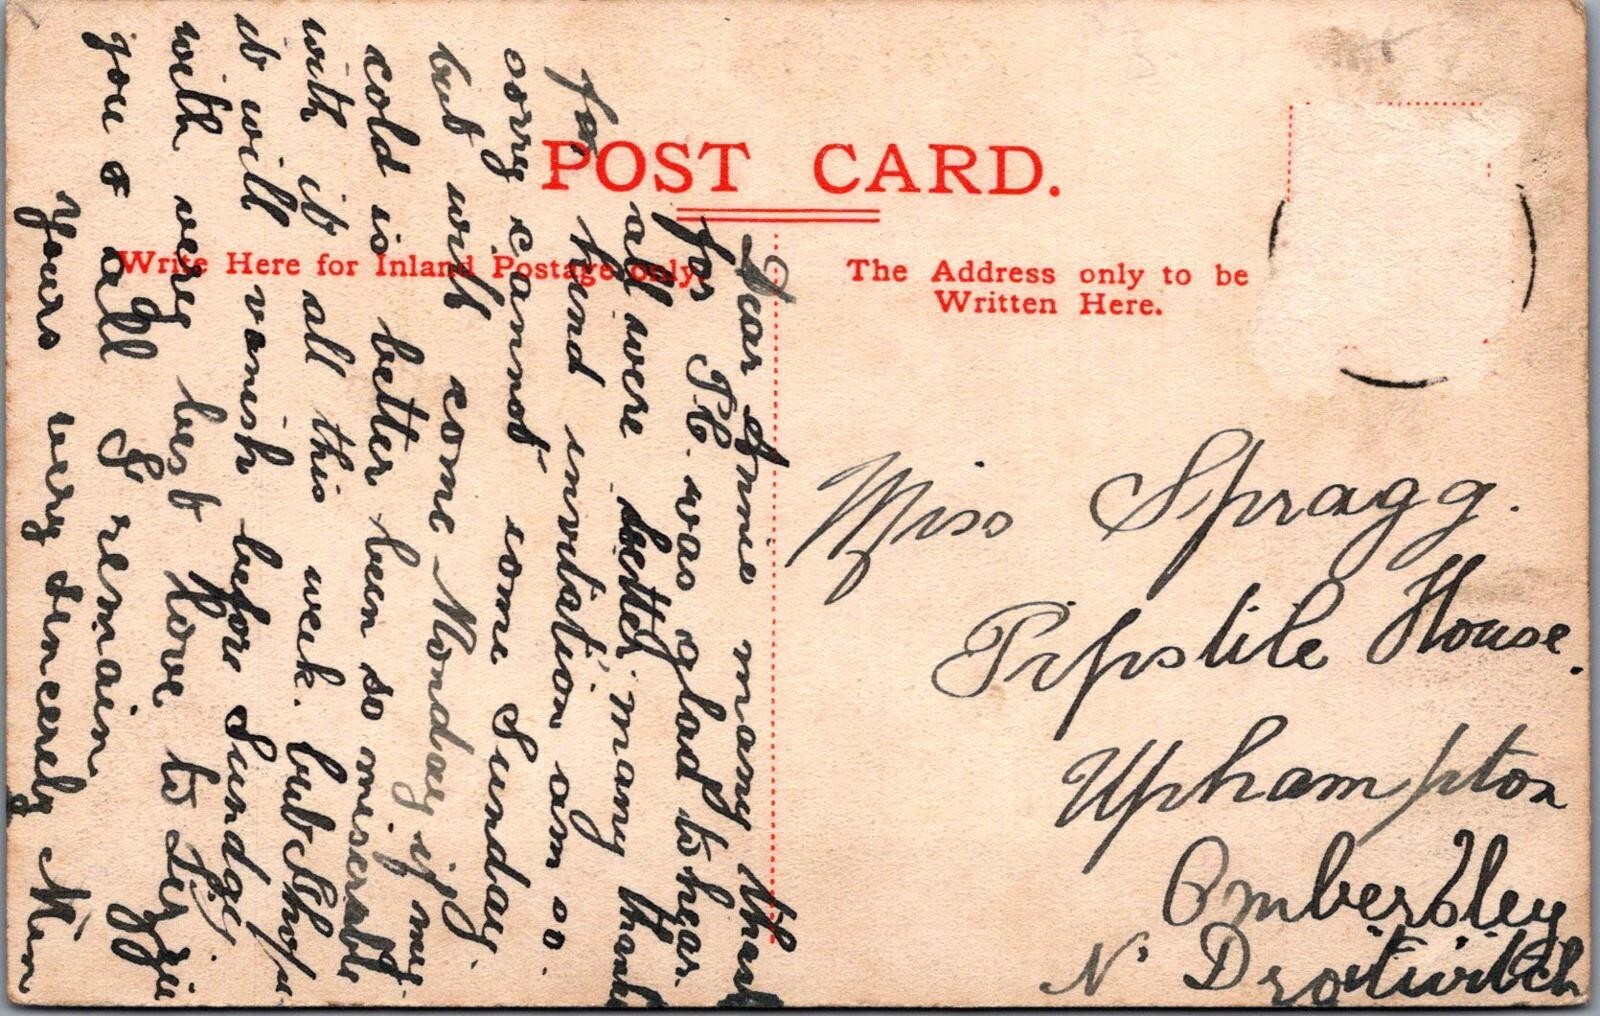 POST CARD.
Write Here for Inland Postage only.
The Address only to be
Written Here.
Dear Annie many thanks
for P.C. was glad to hear
all were better, many thanks
for kind invitation am so
sorry cannot come Sunday.
but will come Monday if my
cold is better been so miserable
with it all this week. but I hope
it will vanish before Sunday,
with very best love to Lizzie
you & all I remain
Yours very sincerely
Miss Spragg.
Pipstile House.
Uphampton
Ombersley
Nr Droitwitch